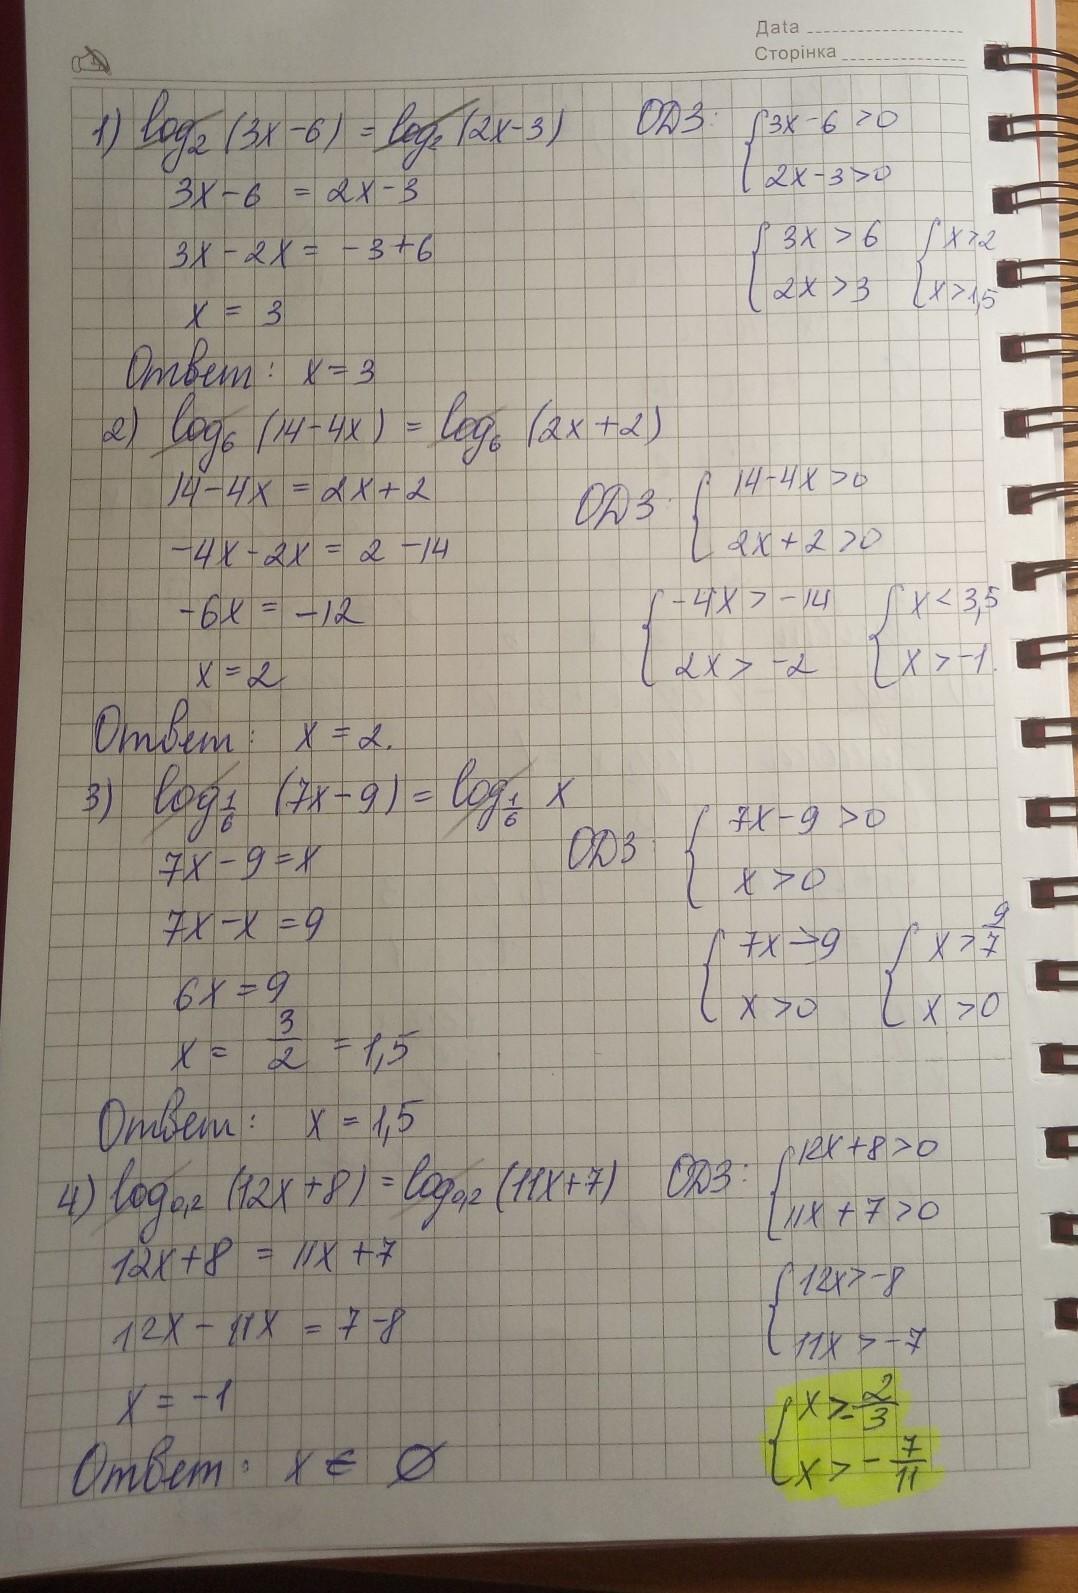 Дata
Сторінка
1) log₂ (3x-6) = log₂ (2x-3) ОДЗ: {3x-6>0
2x-3>0
3x-6 = 2x-3
3x-2x = -3+6 {3x>6 {x>2
2x>3 x>1,5
x = 3
Ответ: x=3
2) log₆ (14-4x) = log₆ (2x+2)
14-4x = 2x+2 ОДЗ: {14-4x>0
2x+2>0
-4x-2x = 2-14
-6x = -12 {-4x>-14 {x<3,5
2x>-2 x>-1.
x=2
Ответ: x=2.
3) log 1/6 (7x-9) = log 1/6 x
7x-9=x ОДЗ {7x-9>0
x>0
7x-x=9 {7x>9 {x>9/7
x>0 x>0
6x=9
x = 3/2 = 1,5
Ответ: x=1,5
4) log₀,₂ (12x+8) = log₀,₂ (11x+7) ОДЗ: {12x+8>0
11x+7>0
12x+8 = 11x+7
{12x>-8
11x>-7
12x-11x = 7-8
x=-1 {x>-2/3
x>-7/11
Ответ: x ∈ ∅